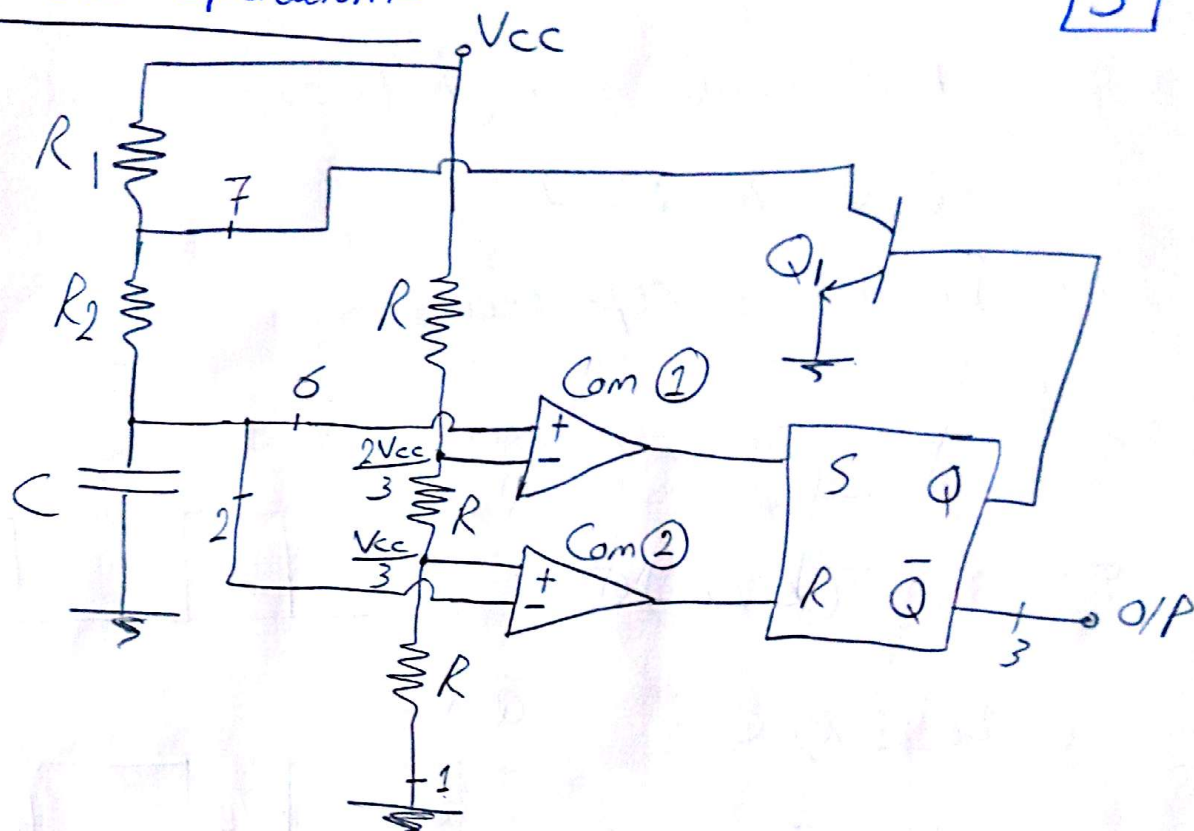 3
Vcc
R1
7
R2
R
Q1
6
Com ①
+
2Vcc/3
-
S
Q
C
2
R
Vcc/3
Com ②
+
-
R
Q̅
3
O/P
R
1